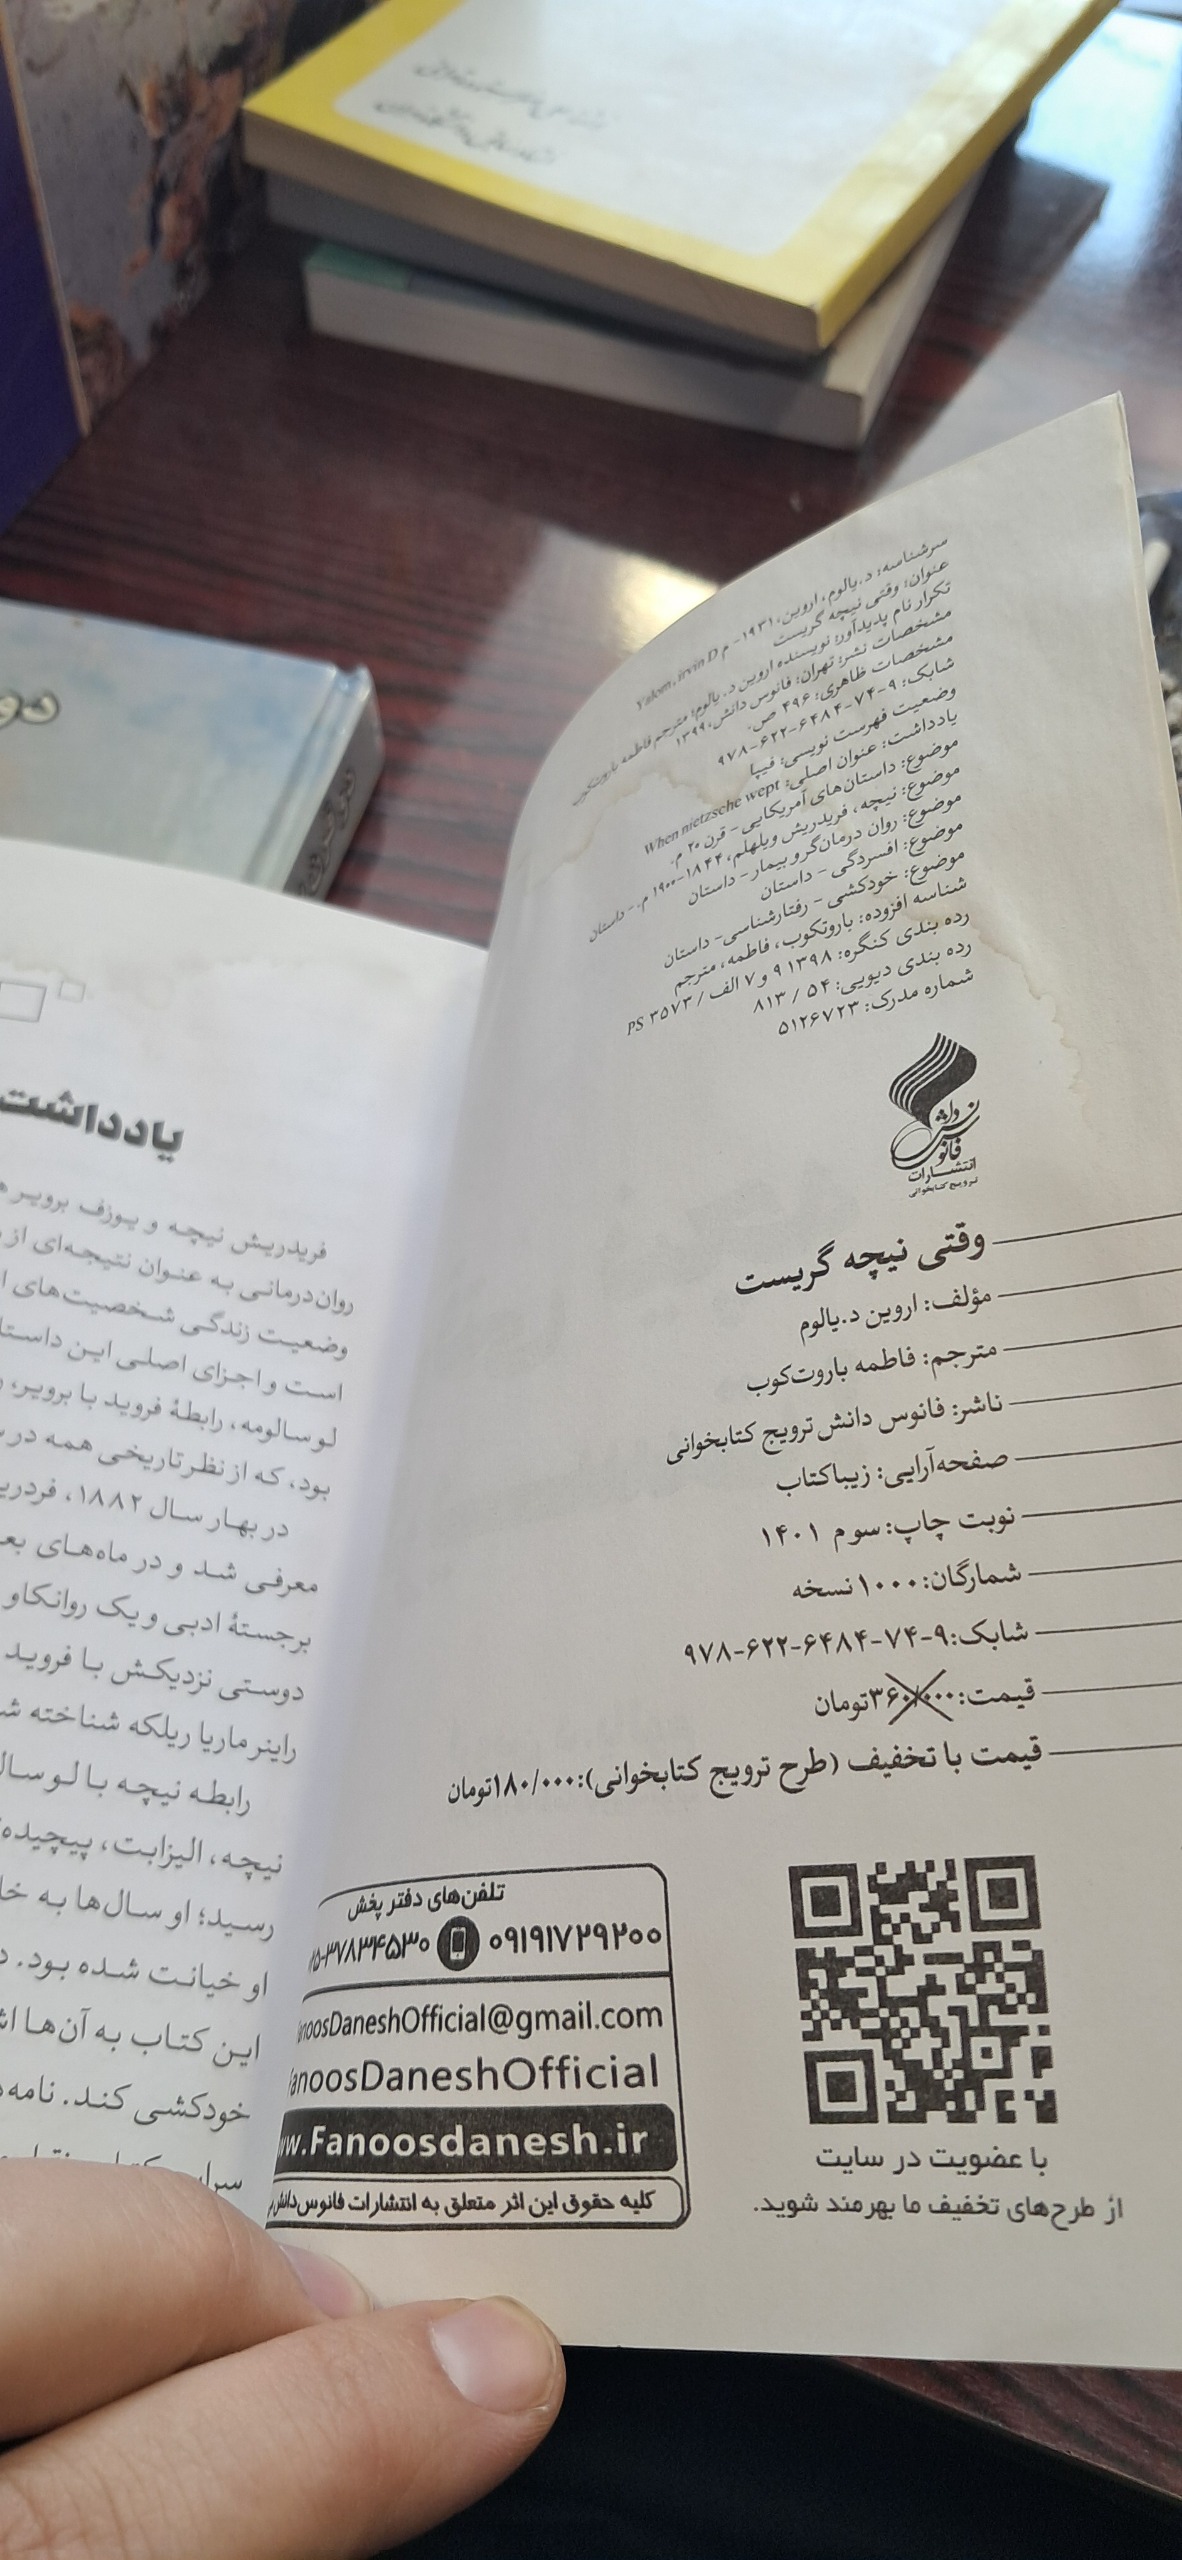 سرشناسه: د.یالوم، اروین، ۱۹۳۱- م Yalom, irvin D
عنوان: وقتی نیچه گریست
تکرار نام پدیدآور: نویسنده اروین د. یالوم؛ مترجم فاطمه باروتکوب
مشخصات نشر: تهران: فانوس دانش، ۱۳۹۹
مشخصات ظاهری: ۴۹۶ ص.
شابک: ۹-۷۴-۶۴۸۴-۶۲۲-۹۷۸
وضعیت فهرست نویسی: فیپا
یادداشت: عنوان اصلی: When nietzsche wept
موضوع: داستان‌های آمریکایی - قرن ۲۰ م.
موضوع: نیچه، فریدریش ویلهلم، ۱۸۴۴-۱۹۰۰ م. - داستان
موضوع: روان درمان‌گر و بیمار - داستان
موضوع: افسردگی - داستان
موضوع: خودکشی - رفتارشناسی- داستان
شناسه افزوده: باروتکوب، فاطمه، مترجم
رده بندی کنگره: ۱۳۹۸ ۹ و ۷ الف / PS ۳۵۷۳
رده بندی دیویی: ۵۴ / ۸۱۳
شماره مدرک: ۵۱۲۶۷۲۳
فانوس دانش
انتشارات
ترویج کتابخوانی
وقتی نیچه گریست
مؤلف: اروین د.یالوم
مترجم: فاطمه باروت‌کوب
ناشر: فانوس دانش ترویج کتابخوانی
صفحه‌آرایی: زیباکتاب
نوبت چاپ: سوم ۱۴۰۱
شمارگان: ۱۰۰۰ نسخه
شابک: ۹-۷۴-۶۴۸۴-۶۲۲-۹۷۸
قیمت: ۳۶۰/۰۰۰تومان
قیمت با تخفیف (طرح ترویج کتابخوانی): ۱۸۰/۰۰۰تومان
تلفن‌های دفتر پخش
۰۹۱۹۱۷۲۹۲۰۰ ۲۵-۳۷۸۳۴۵۳۰
noosDaneshOfficial@gmail.com
anoosDaneshOfficial
w.Fanoosdanesh.ir
کلیه حقوق این اثر متعلق به انتشارات فانوس دانش
با عضویت در سایت
از طرح‌های تخفیف ما بهرمند شوید.
یادداشت
فریدریش نیچه و یوزف برویر
روان‌درمانی به عنوان نتیجه‌ای از
وضعیت زندگی شخصیت‌های
است و اجزای اصلی این داستا
لو سالومه، رابطهٔ فروید با برویر،
بود، که از نظر تاریخی همه در
در بهار سال ۱۸۸۲، فردری
معرفی شد و در ماه‌های بع
برجستهٔ ادبی و یک روانکاو
دوستی نزدیکش با فروید
راینر ماریا ریلکه شناخته ش
رابطه نیچه با لو سال
نیچه، الیزابت، پیچیده
رسید؛ او سال‌ها به خا
او خیانت شده بود.
این کتاب به آن‌ها
خودکشی کند. نامه
دو